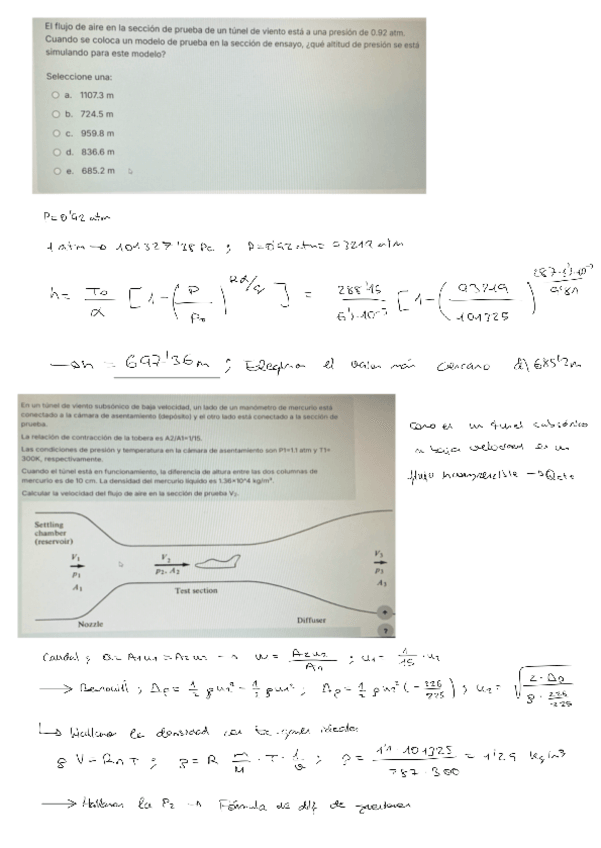 El flujo de aire en la sección de prueba de un túnel de viento está a una presión de 0.92 atm.
Cuando se coloca un modelo de prueba en la sección de ensayo, ¿qué altitud de presión se está
simulando para este modelo?
Seleccione una:
a. 1107.3 m
b. 724.5 m
c. 959.8 m
d. 836.6 m
e. 685.2 m
P=0'92 atm
1 atm → 101327'38 Pa ; P=0'92 atm =
h = To/α [1-(P/Po)^(Rα/g)] = 288'15/6'5·10⁻³ [1-(93219/101325)
→ h = 697'36 m ; el valor más cercano 685'2m
En un túnel de viento subsónico de baja velocidad, un lado de un manómetro de mercurio está
conectado a la cámara de asentamiento (depósito) y el otro lado está conectado a la sección de
prueba.
La relación de contracción de la tobera es A2/A1=1/15.
Las condiciones de presión y temperatura en la cámara de asentamiento son P1=1.1 atm y T1=
300K, respectivamente.
Cuando el túnel está en funcionamiento, la diferencia de altura entre las dos columnas de
mercurio es de 10 cm. La densidad del mercurio líquido es 1.36×10^4 kg/m³.
Calcular la velocidad del flujo de aire en la sección de prueba V₂.
Como es un túnel subsónico
a baja velocidad es un
flujo incompresible →
Settling
chamber
(reservoir)
V₁
P₁
A₁
V₂
P₂, A₂
Test section
V₃
P₃
A₃
Nozzle
Diffuser
Caudal ; Q = A₁u₁ = A₂u₂ → u₁ = A₂u₂/A₁ ; u₁ = 1/15 · u₂
→ Bernouilli ; Δp = 1/2 ρu₁² - 1/2 ρu₂² ; Δp = 1/2 ρu₂² ; u₂ =
↳ Hallamos la densidad
P V = R n T ; P = R m/M · T · 1/V ; ρ = 1'1·101325/287·300 = 1'29 kg/m³
→ Hallamos la P₂ → Fórmula de dif de presiones